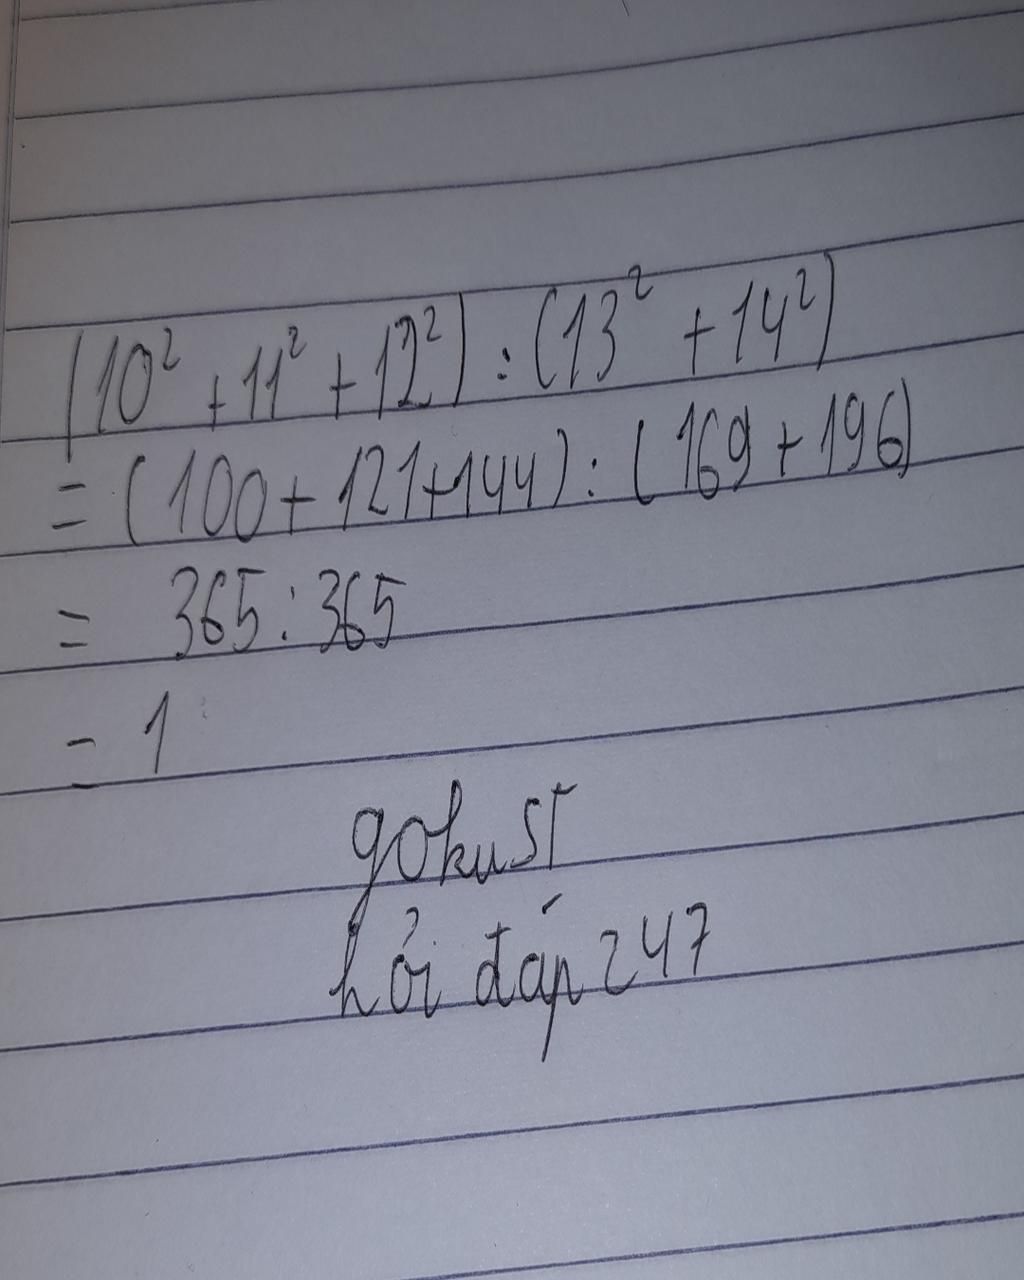 (10² + 11² + 12²) : (13² + 14²)
= (100 + 121 + 144) : (169 + 196)
= 365 : 365
= 1
gokusт
hỏi đáp 247